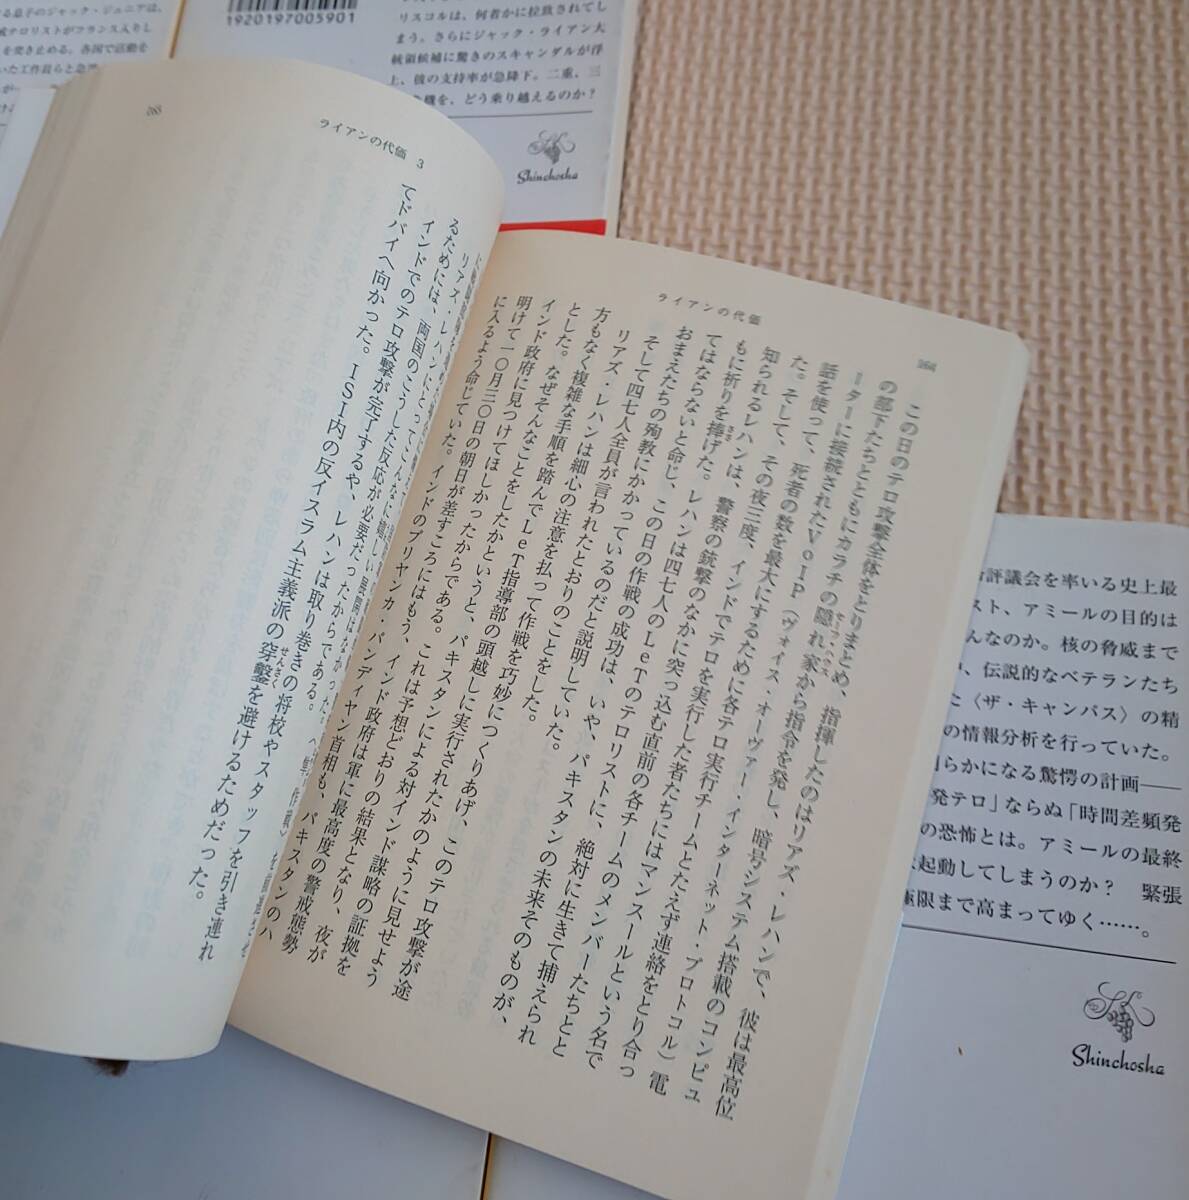 る息子のジャック・ジュニアは、
テロリストがフランス入りし
を突き止める。各国で活動を
いた工作員らと急
1920197005901
リスコルは、何者かに拉致されてし
まう。さらにジャック・ライアン大
統領候補に驚きのスキャンダルが浮
上、彼の支持率が急降下。二重、三
機を、どう乗り越えるのか?
Shinchosha
ライアンの代価
264
この日のテロ攻撃全体をとりまとめ、指揮したのはリアズ・レハンで、彼は最高位
の部下たちとともにカラチの隠れ家から指令を発し、暗号システム搭載のコンピュ
ーターに接続されたVoIP(ヴォイス・オーヴァー・インターネット・プロトコル)電
話を使って、死者の数を最大にするために各テロ実行チームとたえず連絡をとり合っ
た。そして、その夜三度、インドでテロを実行した者たちにはマンスールという名で
知られるレハンは、警察の銃撃のなかに突っ込む直前の各チームのメンバーたちとと
もに祈りを捧げた。レハンは四七人のLeTのテロリストに、絶対に生きて捕えられ
てはならないと命じ、この日の作戦の成功は、いや、パキスタンの未来そのものが、
おまえたちの殉教にかかっているのだと説明していた。
そして四七人全員が言われたとおりのことをした。
リアズ・レハンは細心の注意を払って作戦を巧妙につくりあげ、このテロ攻撃が途
方もなく複雑な手順を踏んでLeT指導部の頭越しに実行されたかのように見せよう
とした。なぜそんなことをしたかというと、パキスタンによる対インド謀略の証拠を
インド政府に見つけてほしかったからである。これは予想どおりの結果となり、夜が
明けて一〇月三〇日の朝日が差すころにはもう、インド政府は軍に最高度の警戒態勢
に入るよう命じていた。インドのプリヤンカ・パンディヤン首相も、パキスタンのハ
ライアンの代価 3
265
リアズ・レハンにとって
るためには、両国のこうした反応が必要だったからである。
インドでのテロ攻撃が完了するや、レハンは取り巻きの将校やスタッフを引き連れ
てドバイへ向かった。ISI内の反イスラム主義派の穿鑿を避けるためだった。
せんさく
評議会を率いる史上最
スト、アミールの目的は
んなのか。核の脅威まで
、伝説的なベテランたち
た〈ザ・キャンパス〉の精
の情報分析を行っていた。
らかになる驚愕の計画——
発テロ」ならぬ「時間差頻発
の恐怖とは。アミールの最終
起動してしまうのか? 緊張
極限まで高まってゆく……。
Shinchosha